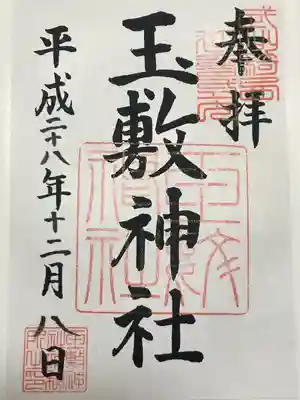 奉拝
玉敷神社
平成二十八年十二月八日